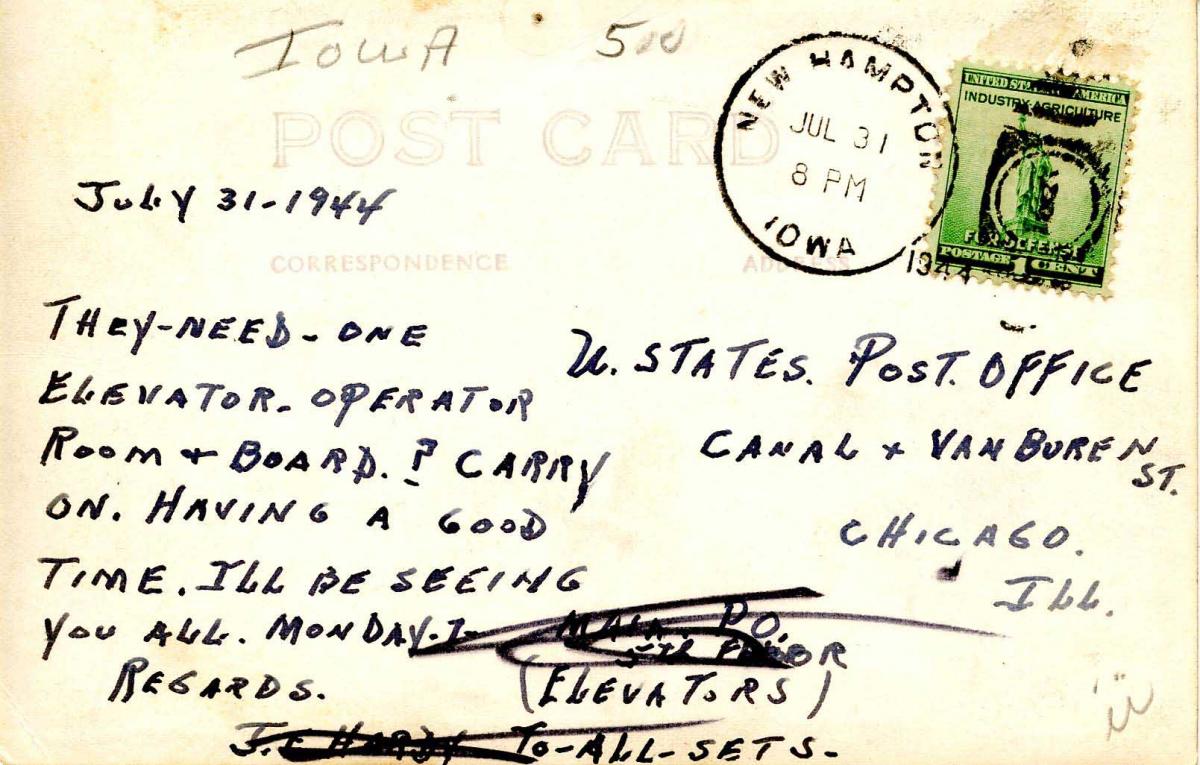 IOWA 500
POST CARD
NEW HAMPTON
JUL 31
8 PM
IOWA
1944
UNITED STATES OF AMERICA
INDUSTRY-AGRICULTURE
FOR DEFENSE
POSTAGE 1 CENT
JULY 31-1944
CORRESPONDENCE
ADDRESS
THEY-NEED-ONE
ELEVATOR-OPERATOR
ROOM + BOARD.? CARRY
ON. HAVING A GOOD
TIME. ILL BE SEEING
YOU ALL. MONDAY-7-
REGARDS.
TO-ALL-SETS-
U. STATES. POST. OFFICE
CANAL + VAN BUREN
ST.
CHICAGO.
ILL.
MAIN. P.O.
5TH FLOOR
(ELEVATORS)